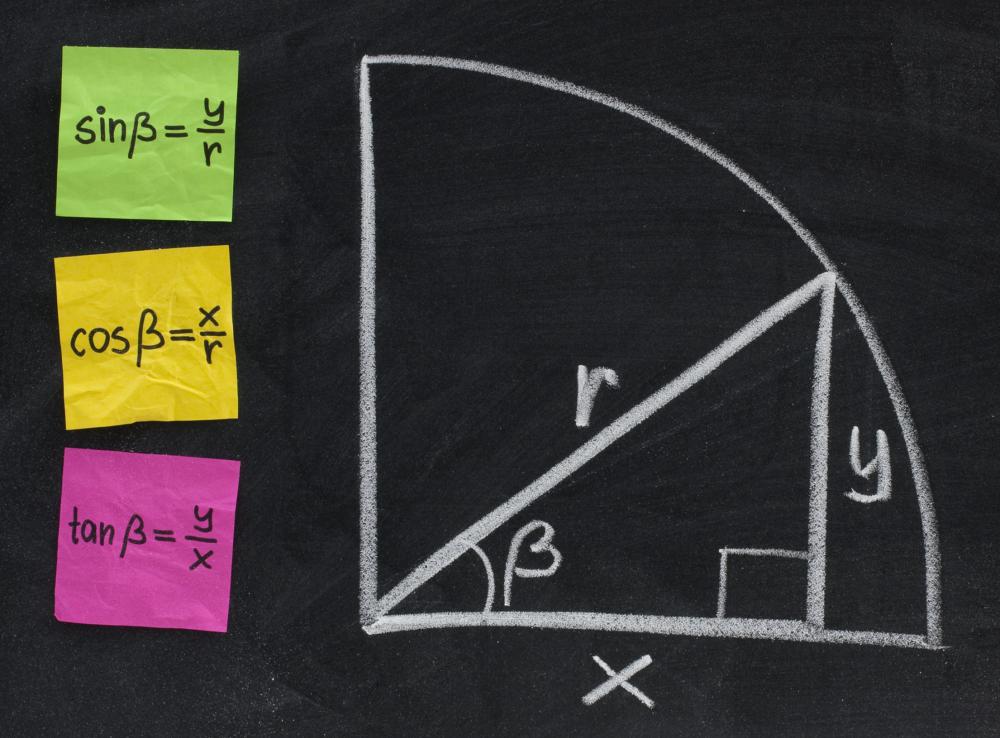 sinβ = y/r
cosβ = x/r
tanβ = y/x
r
y
β
x